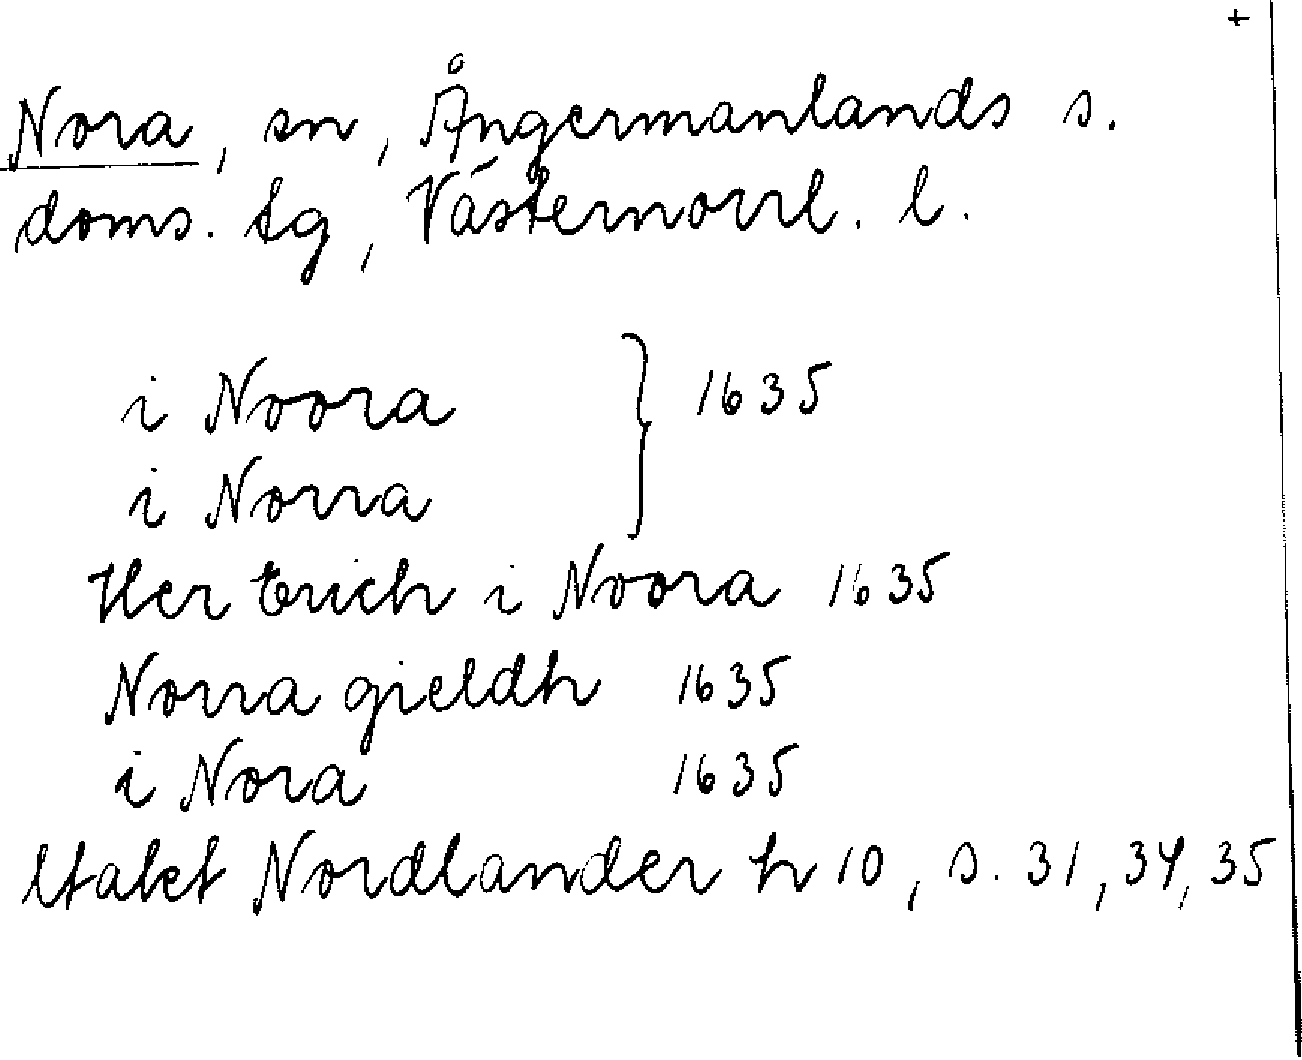 +
Nora, sn, Ångermanlands s.
doms. tg, Västernorrl. l.
i Noora } 1635
i Norra
Her Erich i Noora 1635
Norra gieldh 1635
i Nora 1635
Utalet Nordlander h 10, s. 31, 34, 35